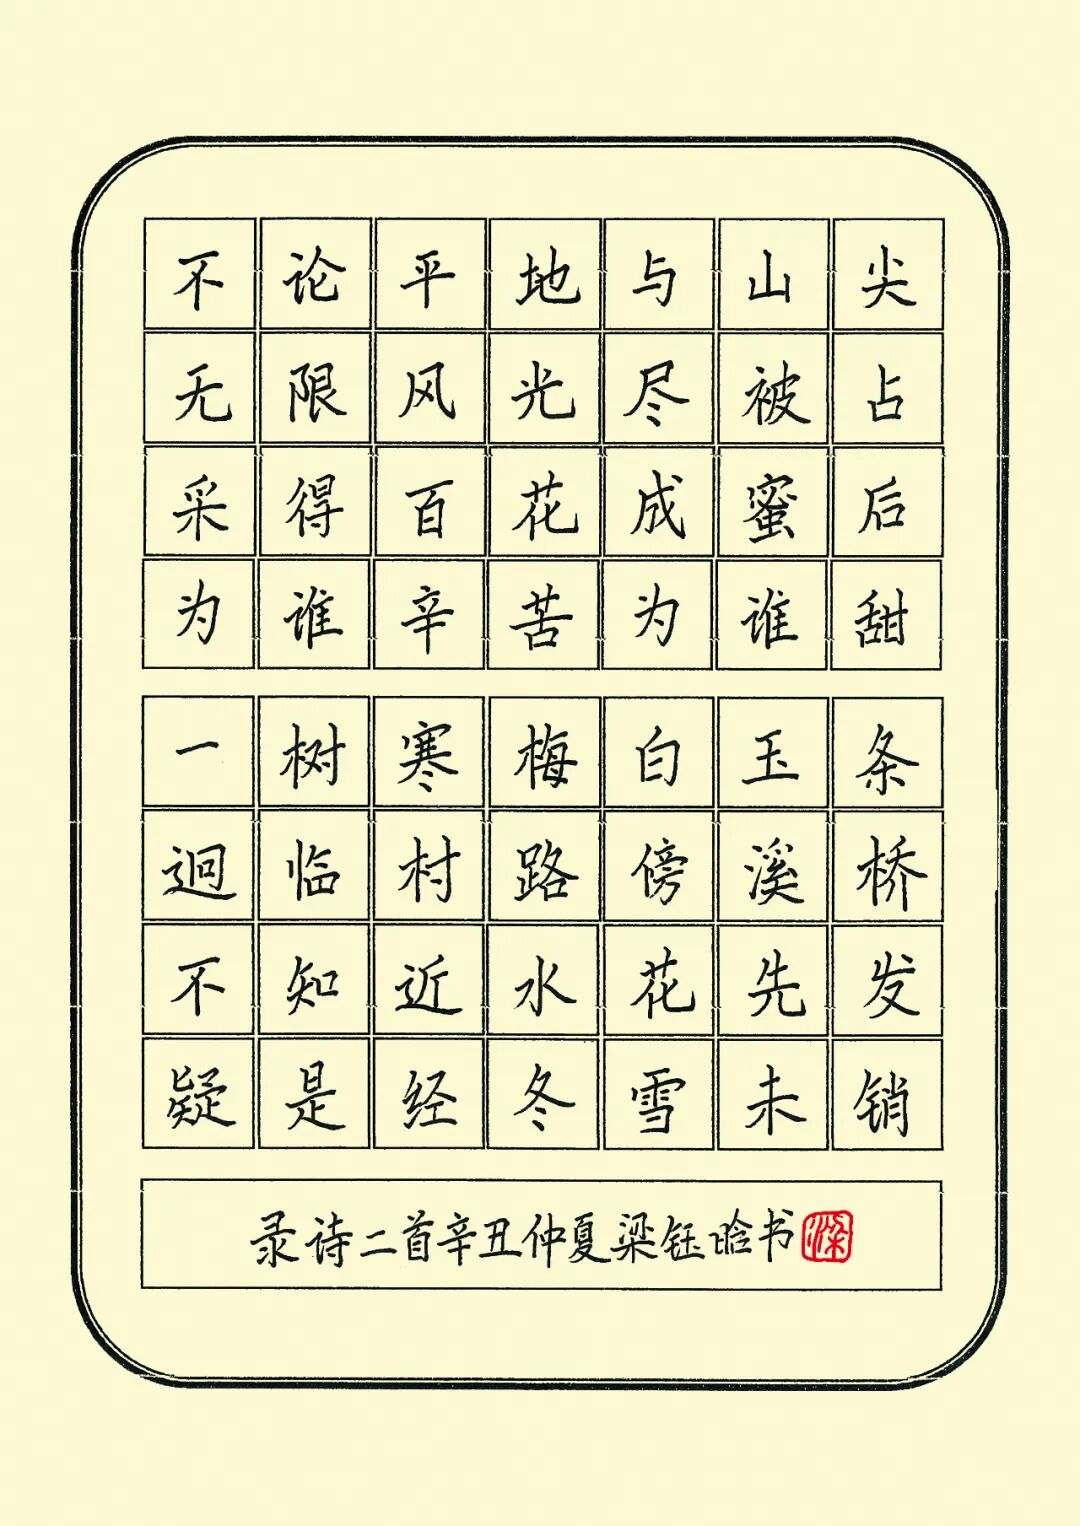 不论平地与山尖
无限风光尽被占
采得百花成蜜后
为谁辛苦为谁甜
一树寒梅白玉条
迥临村路傍溪桥
不知近水花先发
疑是经冬雪未销
录诗二首辛丑仲夏梁钰晗书
梁